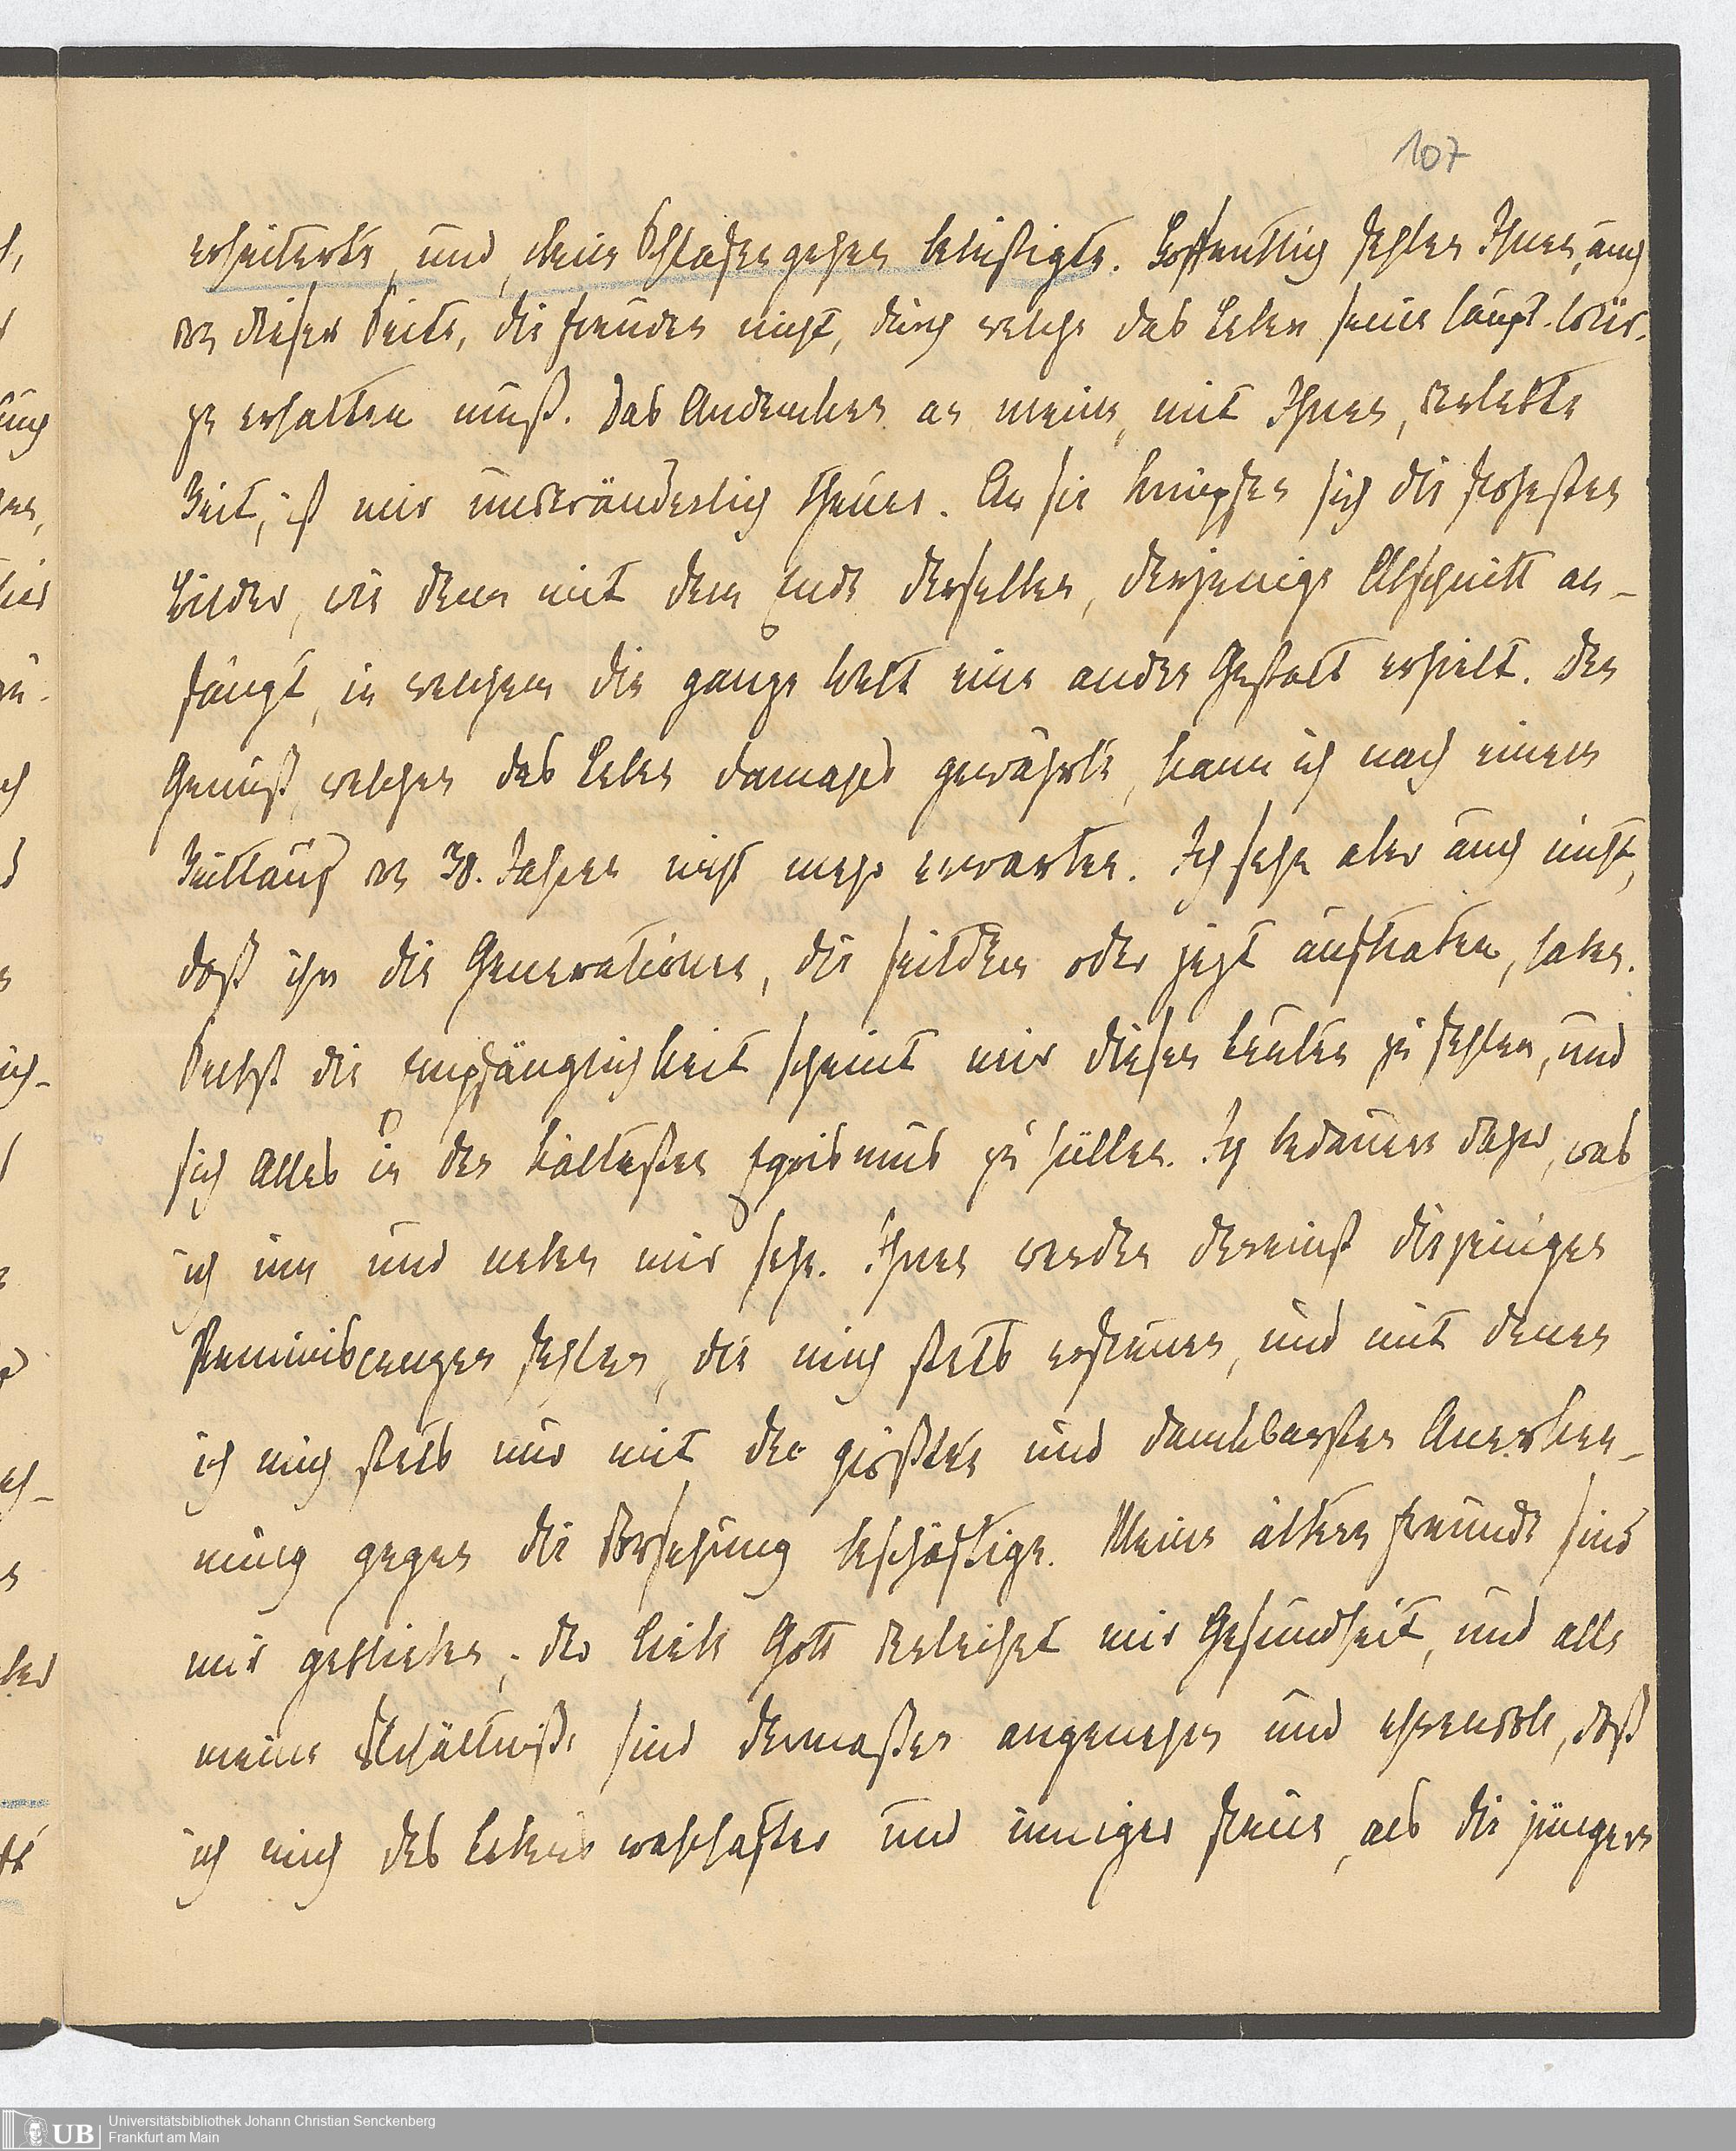 107
erheiterte, und beim Schlafengehen belustigte. Hoffentlich fehlen Ihnen, auch
von dieser Seite, die Freuden nicht, durch welche das Leben seine Haupt-Wür-
ze erhalten muß. Das Andenken an meine, mit Ihnen, verlebte
Zeit, ist mir unveränderlich theuer. An sie knüpfen sich die frohesten
Bilder, wie denn mit dem Ende derselben, derjenige Abschnitt an-
fängt, in welchem die ganze Welt eine andre Gestalt erhielt. Den
Genuß, welchen das Leben damals gewährte, kann ich nach einem
Zeitlauf von 30. Jahren nicht mehr erwarten. Ich sehe aber auch nicht,
daß ihn die Generationen, die seitdem oder jezt auftraten, haben.
Selbst die Empfänglichkeit scheint mir diesen Leuten zu fehlen, und
sich Alles in den kältesten Egoismus zu hüllen. Ich bedauere daher, was
ich um und neben mir sehe. Ihnen werden dereinst diejenigen
Reminiscenzen fehlen, die mich stets erfreuen, und mit denen
ich mich stets nur mit der größten und dankbarsten Anerken-
nung gegen die Vorsehung beschäftige. Meine ältern Freunde sind
mir geblieben; der liebe Gott verleihet mir Gesundheit, und alle
meine Verhältniße sind dermaßen angenehm und ehrenvoll, daß
ich mich des Lebens wahrhafter und inniger freue, als die jüngere
Universitätsbibliothek Johann Christian Senckenberg
Frankfurt am Main
UB